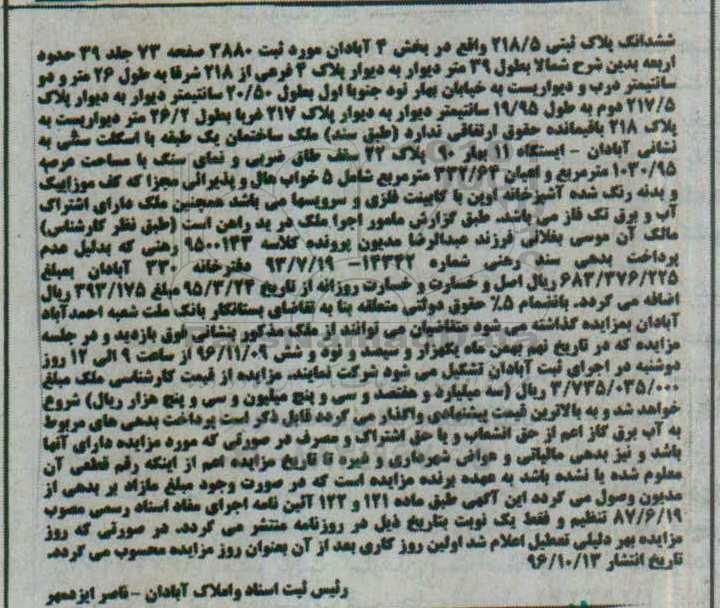 ششدانگ پلاک ثبتی ۲۱۸/۵ واقع در بخش ۴ آبادان مورد ثبت ۳۸۸۰ صفحه ۷۳ جلد ۳۹ حدود
اربعه بدین شرح شمالا بطول ۳۹ متر دیوار به دیوار پلاک ۴ فرعی از ۲۱۸ شرقا به طول ۲۶ متر و دو
سانتیمتر درب و دیواریست به خیابان بهار نود جنوبا اول بطول ۲۰/۵۰ سانتیمتر دیوار به دیوار پلاک
۲۱۷/۵ دوم به طول ۱۹/۹۵ سانتیمتر دیوار به دیوار پلاک ۲۱۷ غربا بطول ۲۶/۲ متر دیواریست به
پلاک ۲۱۸ باقیمانده حقوق ارتفاقی ندارد (طبق سند) ملک ساختمان یک طبقه با اسکلت سنتی به
نشانی آبادان - ایستگاه ۱۱ بهار ۹۰ پلاک ۲۲ سقف طاق ضربی و نمای سنگ با مساحت عرصه
۱۰۳۰/۹۵ مترمربع و اعیان ۳۳۲/۶۴ مترمربع شامل ۵ خواب هال و پذیرائی مجزا که کف موزاییک
و بدنه رنگ شده آشپزخانه اوپن با کابینت فلزی و سرویسها می باشد همچنین ملک دارای اشتراک
آب و برق تک فاز می باشد. طبق گزارش مامور اجرا ملک در ید راهن است (طبق نظر کارشناسی)
مالک آن موسی بغلانی فرزند عبدالرضا مدیون پرونده کلاسه ۹۵۰۰۱۴۳ رهنی که بدلیل عدم
پرداخت بدهی سند رهنی شماره ۱۴۳۴۲- ۹۳/۷/۱۹ دفترخانه ۳۳۰ آبادان بمبلغ
۶۸۳/۳۷۶/۲۲۵ ریال اصل و خسارت و خسارت روزانه از تاریخ ۹۵/۳/۲۴ مبلغ ۳۹۳/۱۷۵ ریال
اضافه می گردد. بانضمام ۵٪ حقوق دولتی متعلقه بنا به تقاضای بستانکار بانک ملت شعبه احمدآباد
آبادان بمزایده گذاشته می شود متقاضیان می توانند از ملک مذکور بنشانی فوق بازدید و در جلسه
مزایده که در تاریخ نهم بهمن ماه یکهزار و سیصد و نود و شش ۹۶/۱۱/۰۹ از ساعت ۹ الی ۱۲ روز
دوشنبه در اجرای ثبت آبادان تشکیل می شود شرکت نمایند. مزایده از قیمت کارشناسی ملک مبلغ
۳/۷۳۵/۰۳۵/۰۰۰ ریال (سه میلیارد و هفتصد و سی و پنج میلیون و سی و پنج هزار ریال) شروع
خواهد شد و به بالاترین قیمت پیشنهادی واگذار می گردد قابل ذکر است پرداخت بدهی های مربوط
به آب برق گاز اعم از حق انشعاب و یا حق اشتراک و مصرف در صورتی که مورد مزایده دارای آنها
باشد و نیز بدهی مالیاتی و عوارض شهرداری و غیره تا تاریخ مزایده اعم از اینکه رقم قطعی آن
معلوم شده یا نشده باشد به عهده برنده مزایده است که در صورت وجود مبلغ مازاد بر بدهی از
مدیون وصول می گردد این آگهی طبق ماده ۱۲۱ و ۱۲۲ آئین نامه اجرای مفاد اسناد رسمی مصوب
۸۷/۶/۱۹ تنظیم و فقط یک نوبت بتاریخ ذیل در روزنامه منتشر می گردد. در صورتی که روز
مزایده بهر دلیلی تعطیل اعلام شد اولین روز کاری بعد از آن بعنوان روز مزایده محسوب می گردد.
تاریخ انتشار ۹۶/۱۰/۱۳
رئیس ثبت اسناد واملاک آبادان -ناصر ایزدمهر